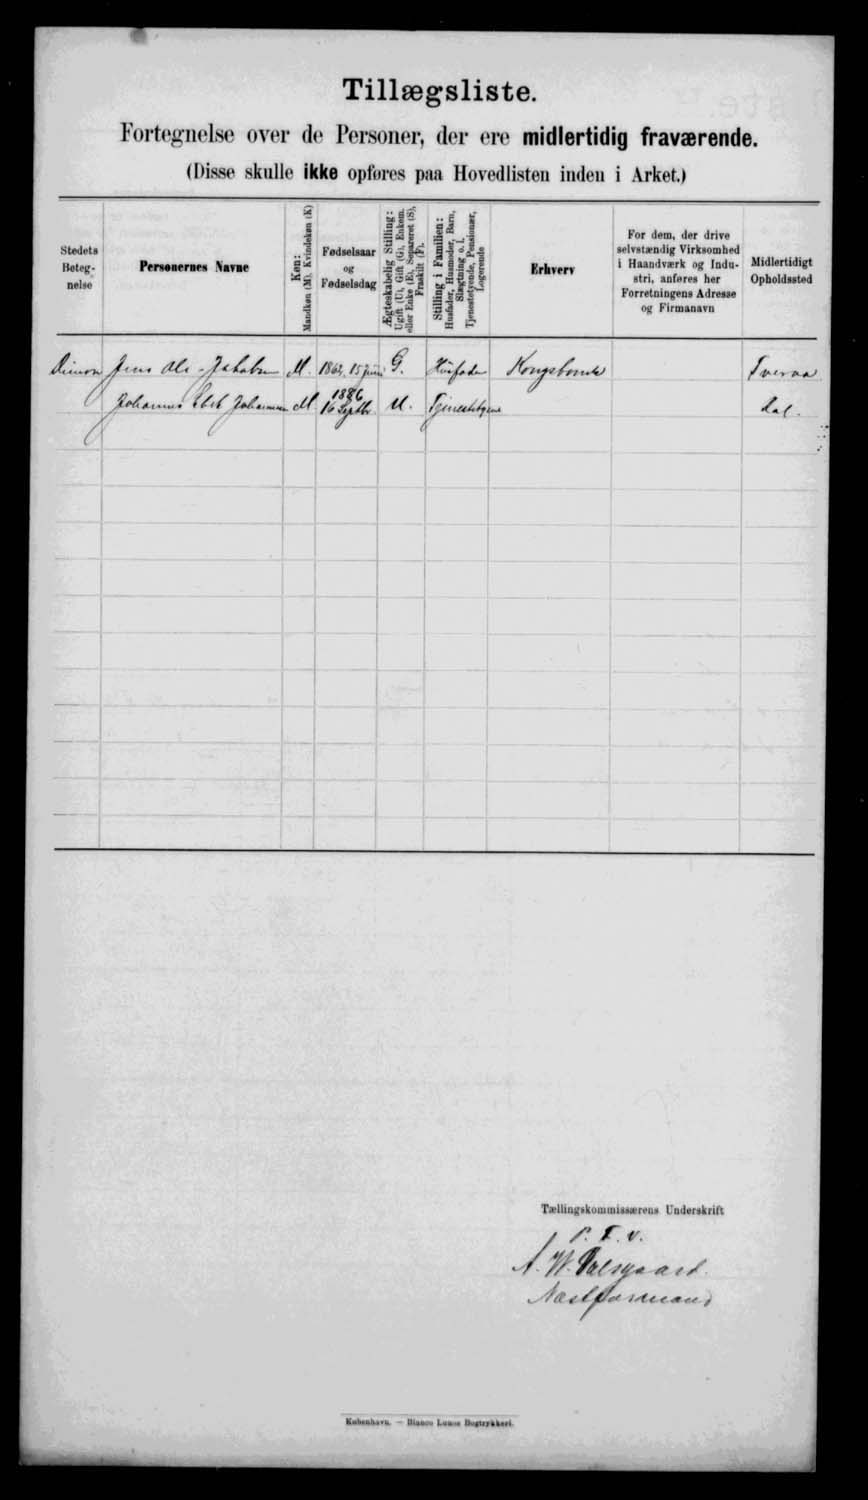 Tillægsliste.
Fortegnelse over de Personer, der ere midlertidig fraværende.
(Disse skulle ikke opføres paa Hovedlisten inden i Arket.)
Stedets
Beteg-
nelse
Personernes Navne
Køn:
Mandkøn (M), Kvindekøn (K)
Fødselsaar
og
Fødselsdag
Ægteskabelig Stilling:
Ugift (U), Gift (G), Enkem.
eller Enke (E), Separeret (S),
Fraskilt (F).
Stilling i Familien:
Husfader, Husmoder, Barn,
Slægtning o. l.
Tjenestetyende, Pensionær,
Logerende
Erhverv
For dem, der drive
selvstændig Virksomhed
i Haandværk og Indu-
stri, anføres her
Forretningens Adresse
og Firmanavn
Midlertidigt
Opholdssted
Dimon Jens Ole Jakobsen M. 15 Juni G. Husfader Kongsbonde Tveraa
Johannes Johannesen M 1886 16 Septbr. U. Tjenestetyende dal.
Tællingskommissærens Underskrift
P. T. V.
A. W. Dalsgaard.
Næstformand
København. — Bianco Lunos Bogtrykkeri.